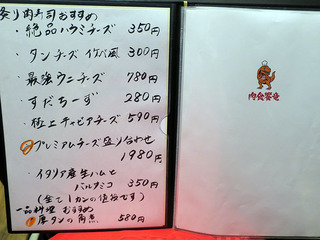 炙り肉寿司おすすめ
・絶品ハラミチーズ 350円
・タンチーズ イタバ風 300円
・最強ウニチーズ 780円
・すだちーず 280円
・極上キャビアチーズ 590円
プレミアムチーズ盛り合わせ
1980円
・イタリア産生ハムと
バルサミコ 350円
(全て1カンの値段です)
一品料理 おすすめ
厚タンの角煮 580円